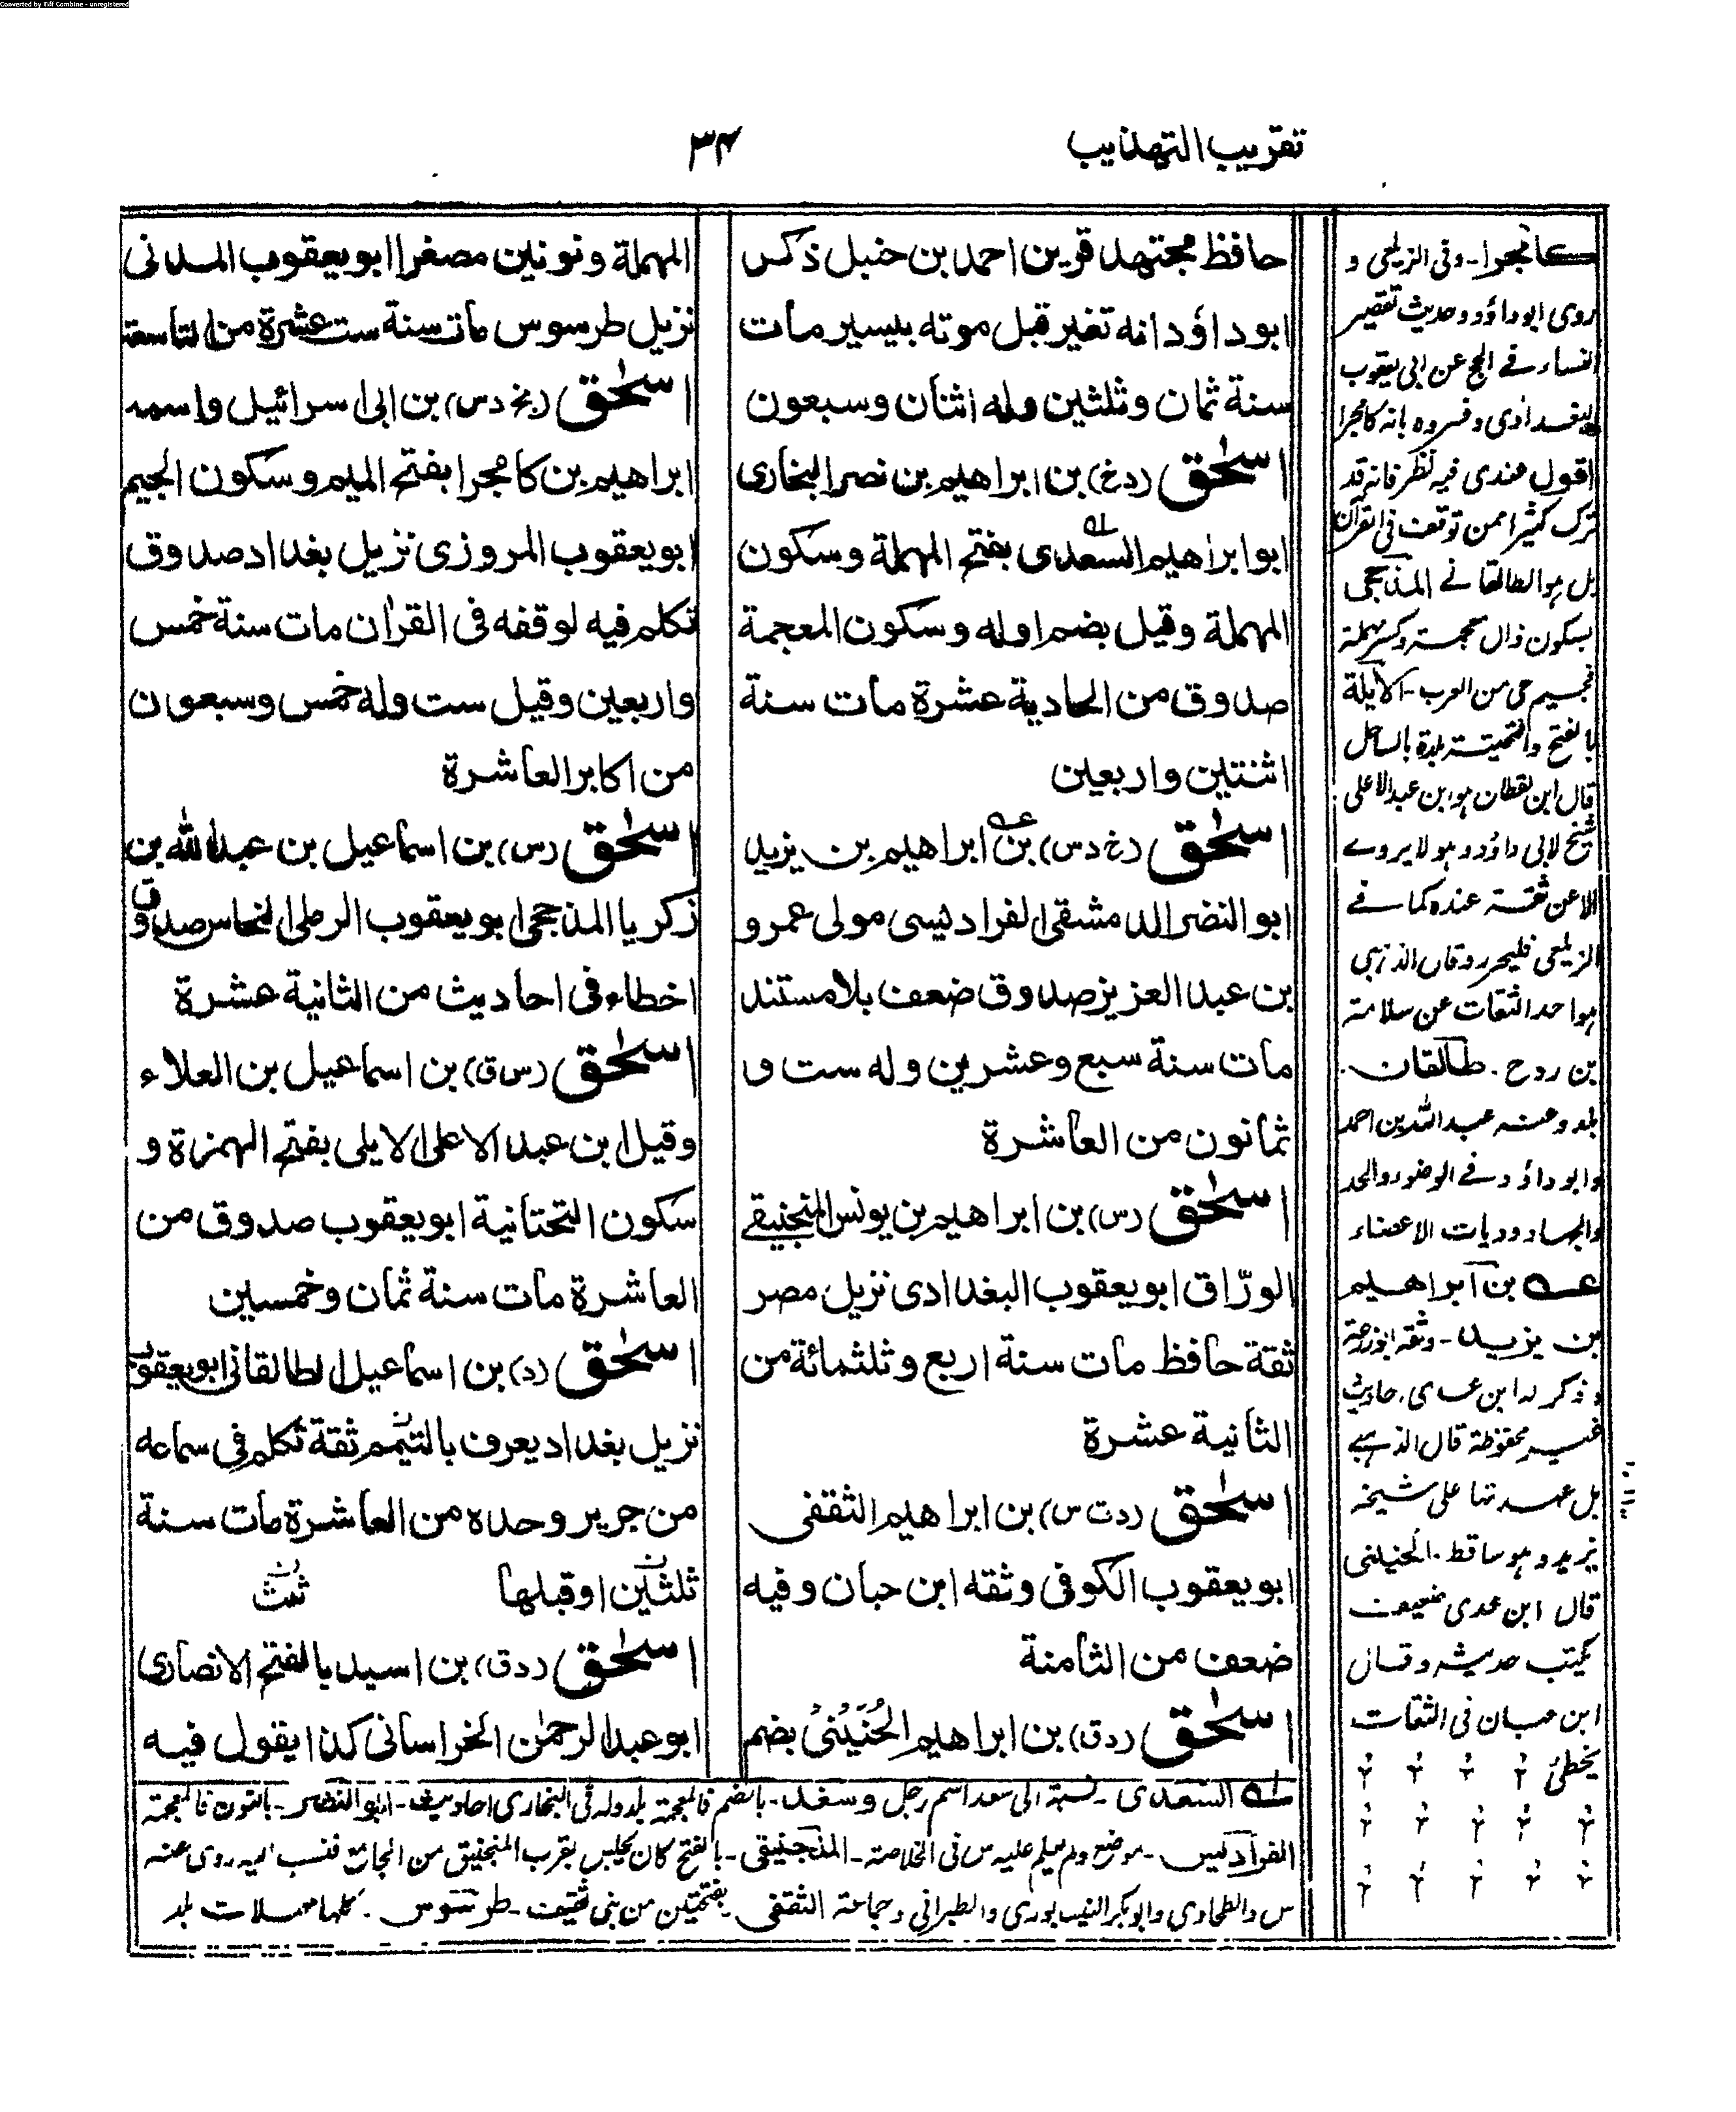 Converted by Tiff Combine - unregistered
تقريب التهذيب
۳۴
حافظ مجتهد قرين احمد بن حنبل ذكر
ابوداؤد انه تغير قبل موته بيسير مات
سنة ثمان وثلثين وله اثنان وسبعون
اسحٰق (دخ) بن ابراهيم بن نصر البخارى
ابو ابراهيم السعدى بفتح المهملة وسكون
المهملة وقيل بضم اوله وسكون المعجمة
صدوق من الحادية عشرة مات سنة
اثنتين واربعين
اسحٰق (خ د س) بن ابراهيم بن يزيد
ابو النضر الدمشقى الفراديسى مولى عمرو
بن عبد العزيز صدوق ضعف بلا مستند
مات سنة سبع وعشرين وله ست و
ثمانون من العاشرة
اسحٰق (س) بن ابراهيم بن يونس المنجنيقے
الورّاق ابو يعقوب البغدادى نزيل مصر
ثقة حافظ مات سنة اربع وثلثمائة من
الثانية عشرة
اسحٰق (دت س) بن ابراهيم الثقفى
ابو يعقوب الكوفى وثقه ابن حبان وفيه
ضعف من الثامنة
اسحٰق (دق) بن ابراهيم الحُنَيْنىُ بضم
المهملة ونونين مصغرا ابو يعقوب المدنى
نزيل طرسوس مات سنة ست عشرة من التاسعة
اسحٰق (بخ دس) بن ابى اسرائيل واسمه
ابراهيم بن كامجرا بفتح الميم وسكون الجيم
ابو يعقوب المروزى نزيل بغداد صدوق
تكلم فيه لوقفه فى القرٰان مات سنة خمس
واربعين وقيل ست وله خمس وسبعون
من اكابر العاشرة
اسحٰق (س) بن اسماعيل بن عبد الله بن
زكريا المذحجى ابو يعقوب الرملى النحاس صدوق
اخطاء فى احاديث من الثانية عشرة
اسحٰق (س ق) بن اسماعيل بن العلاء
وقيل ابن عبد الاعلى الايلى بفتح الهمزة و
سكون التحتانية ابو يعقوب صدوق من
العاشرة مات سنة ثمان وخمسين
اسحٰق (د) بن اسماعيل الطالقانى ابو يعقوب
نزيل بغداد يعرف باليتيم ثقة تكلم فى سماعه
من جرير وحده من العاشرة مات سنة
ثلثين او قبلها
اسحٰق (دق) بن اسيد بالفتح الانصارى
ابو عبد الرحمٰن الخراسانى كذا يقول فيه
كامجرا - وفى الزيلعى و
روى ابو داؤد وحديث تقصير
النساء فے الحج عن ابى يعقوب
البغدادى وفسروه بانه كامجرا
اقول عندى فيه نظر فانه قد
ترك كثيرا ممن توقف فى القرآن
بل هو الطالقانے المذحجى
بسكون ذال معجمة وكسر مهملة
فجيم حى من العرب - الايلة
بالفتح والتحتية بلدة بالساحل
قال ابن القطان هو ابن عبد الاعلى
شيخ لابى داؤد وهو لا يروے
الا عن ثقة عنده كما فے
الزيلعى فليحرر وقال الذهبى
هو احد الثقات عن سلامة
بن روح . طالقان .
بلد وعنه عبد الله بن احمد
وابو داؤد فے الوضوء والحد
والجهاد وديات الاعضاء
عه بن ابراهيم
بن يزيد - وثقه ابو زرعة
وذكر له ابن عدى احاديث
غير محفوظة قال الذهبے
بل عهدتها على شيخه
يزيد وهو ساقط . الحنينى
قال ابن عدى ضعيف
يكتب حديثه وقال
ابن حبان فى الثقات
يخطئ
له السعدى - نسبة الى سعد اسم رجل وسغد - بالضم فالمعجمة بلد وله فى البخارى احاديث - ابو النضر - بالنون فالمعجمة
الفراديس - موضع ولم يعلم عليه س فى الخلاصة - المنجنيقى - بالفتح كان يجلس بقرب المنجنيق من الجامع فنسب اليه روى عنه
س والطحاوى وابو بكر النيسابورى والطبرانى وجماعة الثقفى - بفتحتين من بنى ثقيف - طرسوس - كلها مهملات بلد